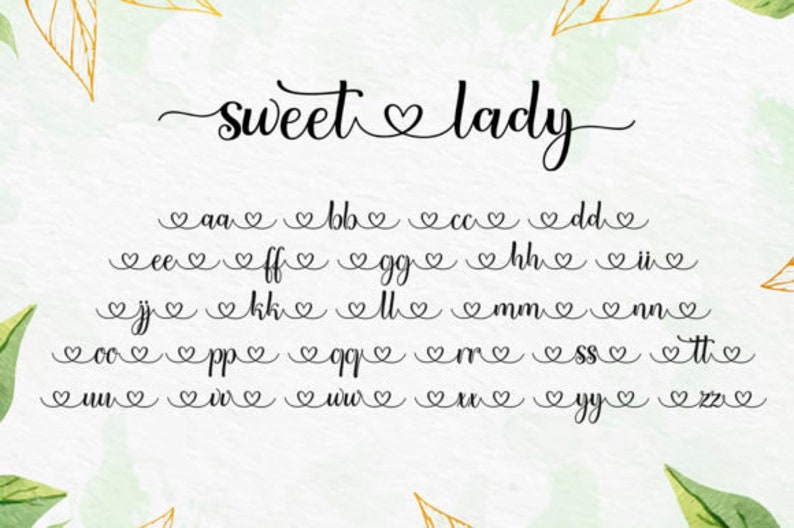 sweet lady
aa bb cc dd
ee ff gg hh ii
jj kk ll mm nn
oo pp qq rr ss tt
uu vv ww xx yy zz